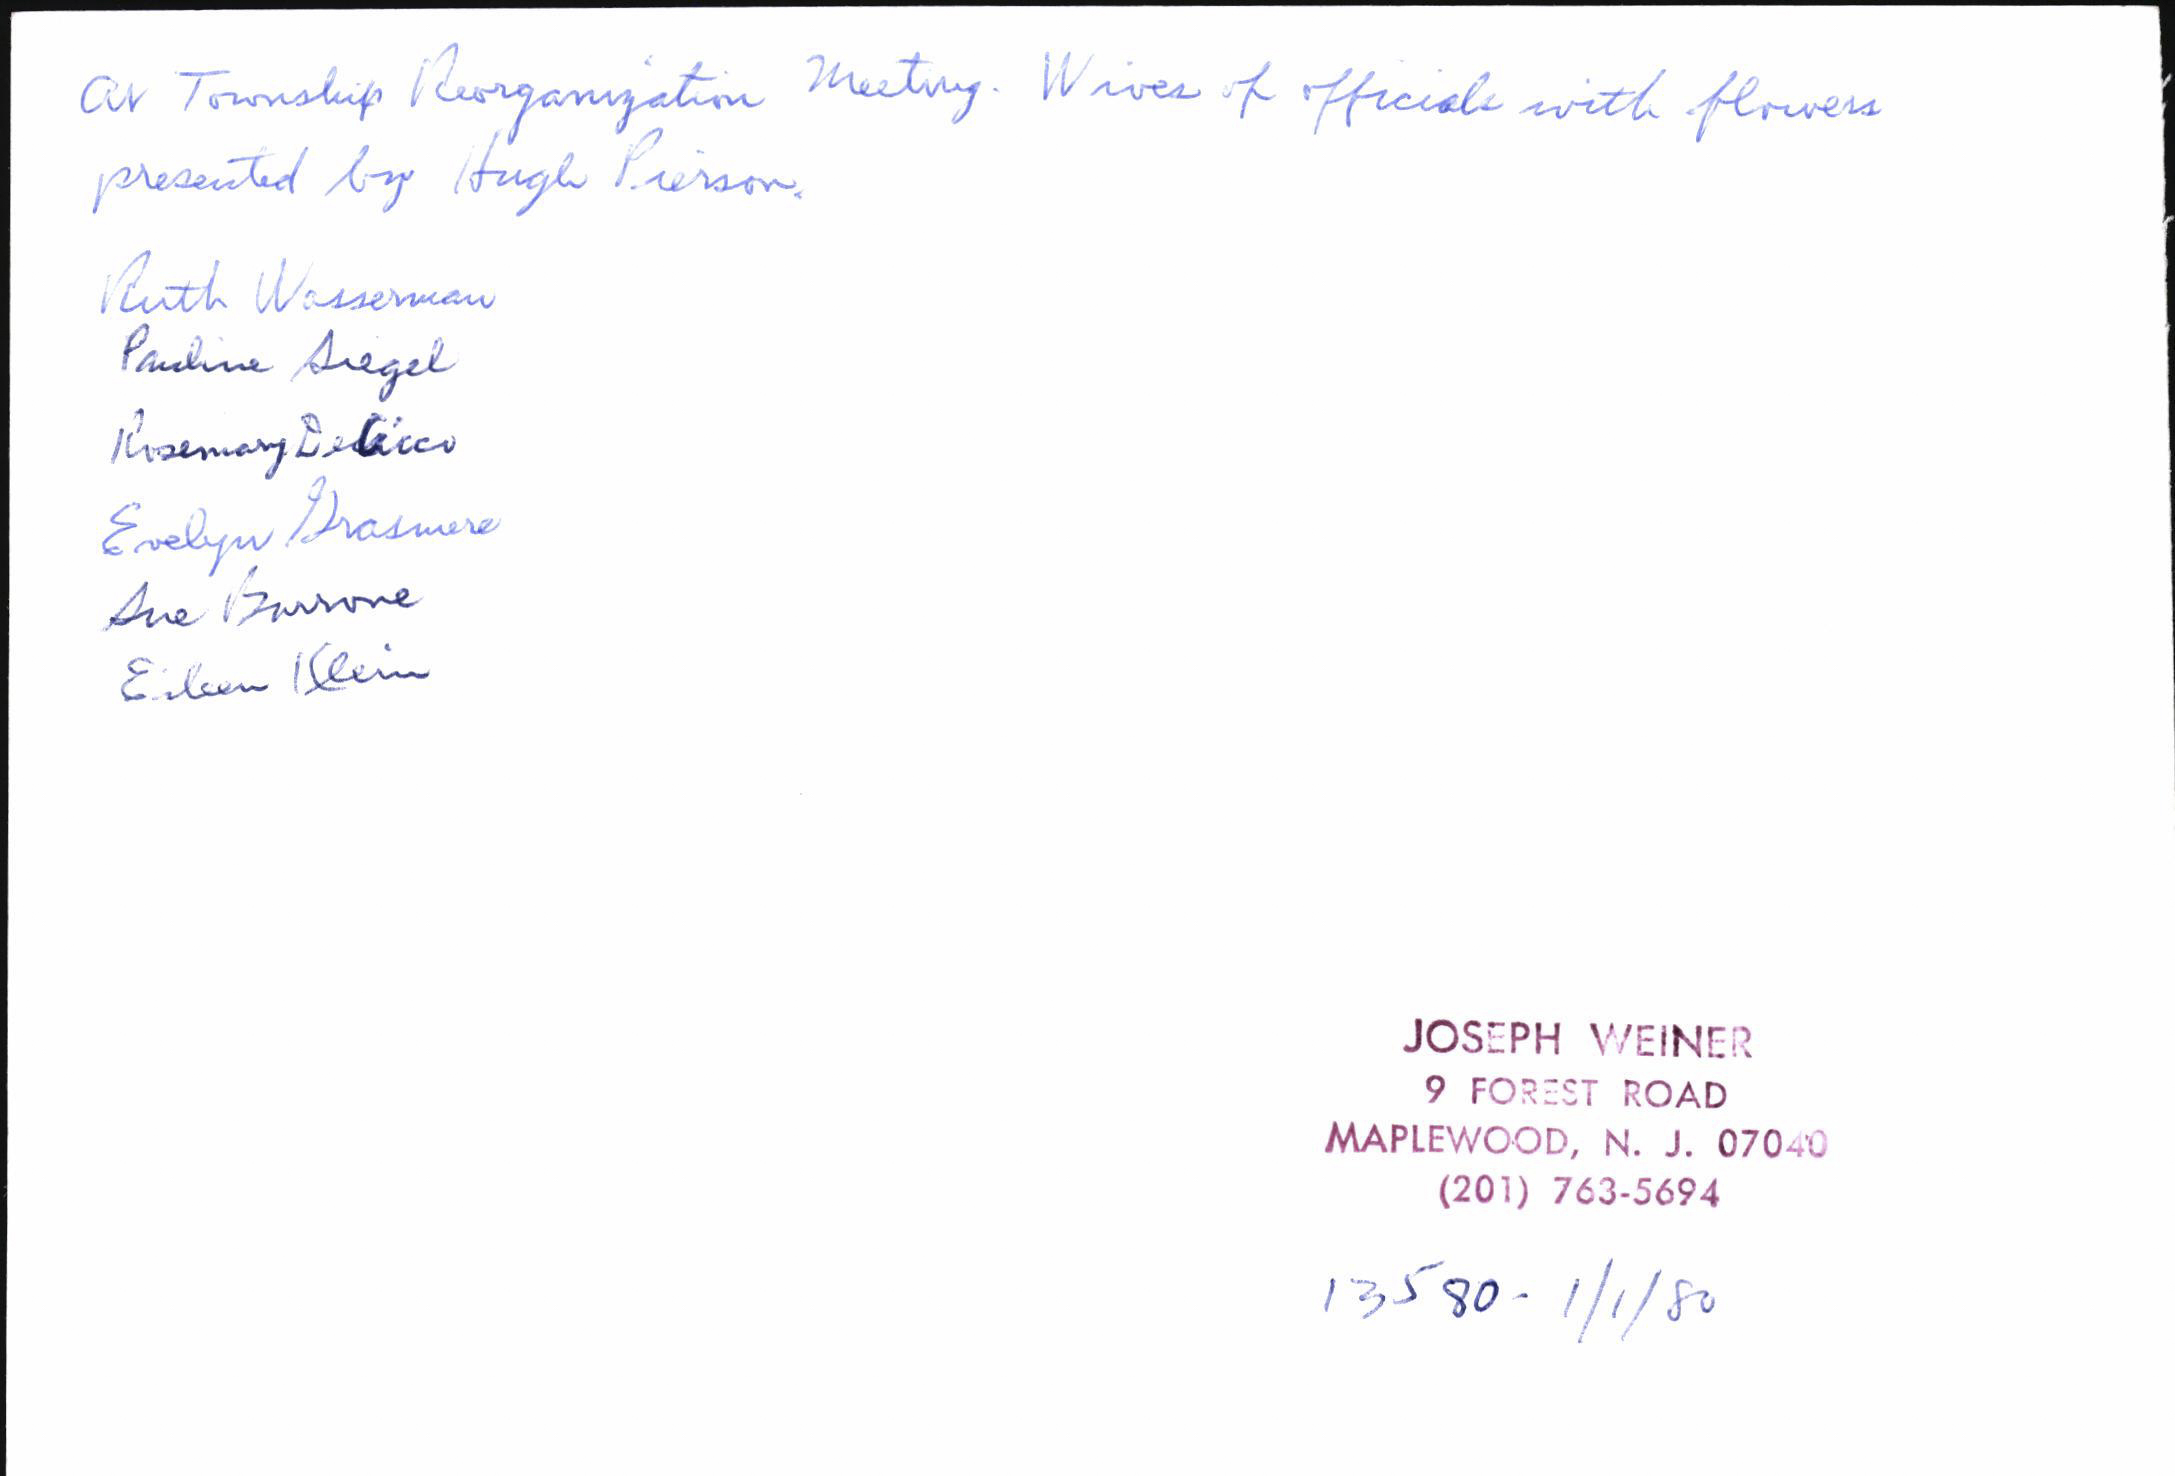 At Township Reorganization Meeting. Wives of officials with flowers
presented by Hugh Pierson.
Ruth Wasserman
Pauline Siegel
Rosemary DeCicco
Evelyn Grasmere
Sue Barrone
Eileen Klein
JOSEPH WEINER
9 FOREST ROAD
MAPLEWOOD, N. J. 07040
(201) 763-5694
13580 - 1/1/80